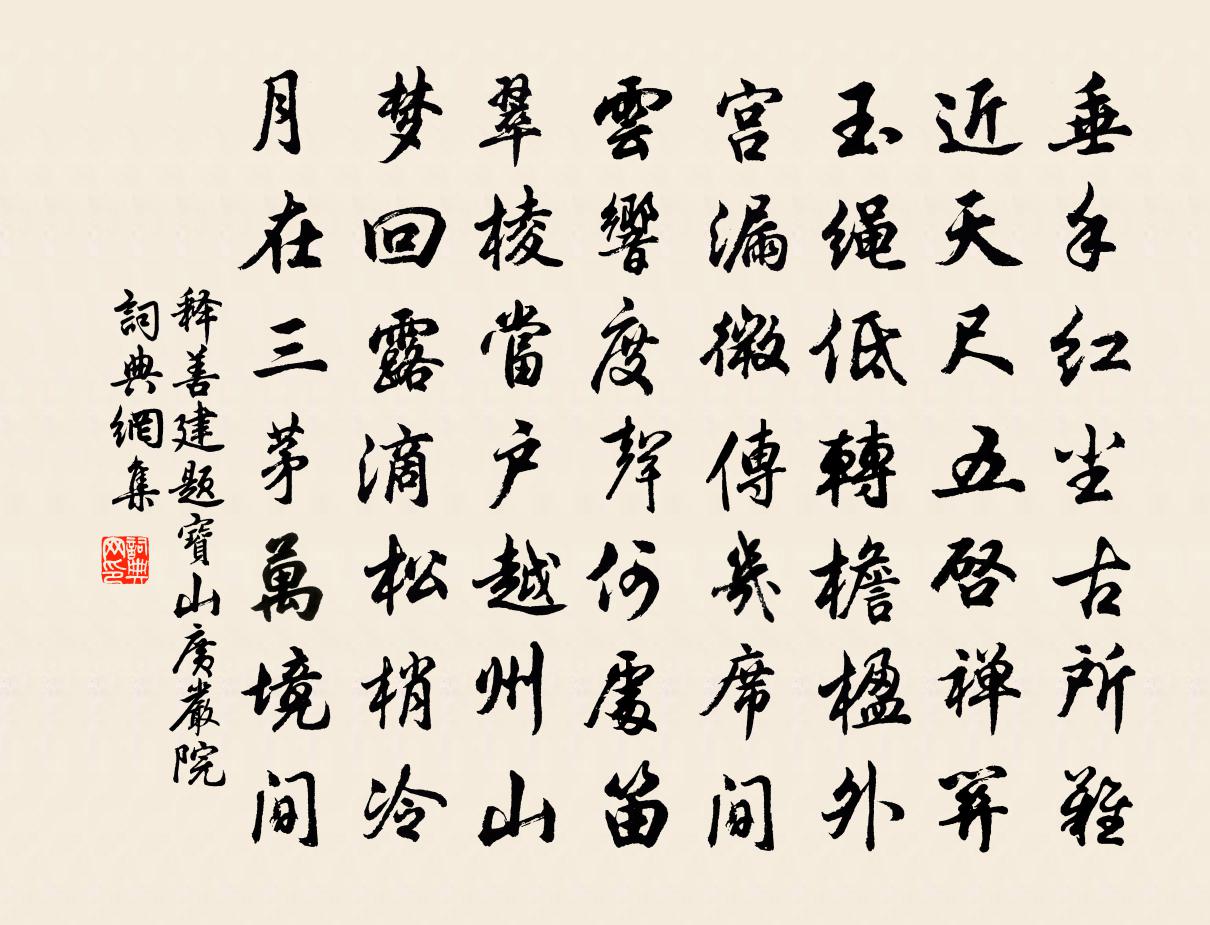 垂手红尘古所难
近天尺五启禅关
玉绳低转檐楹外
宫漏微传几席间
雲響度聲何處笛
翠棱當户越州山
梦回露滴松梢冷
月在三茅萬境间
释善建题寶山广嚴院
詞典網集